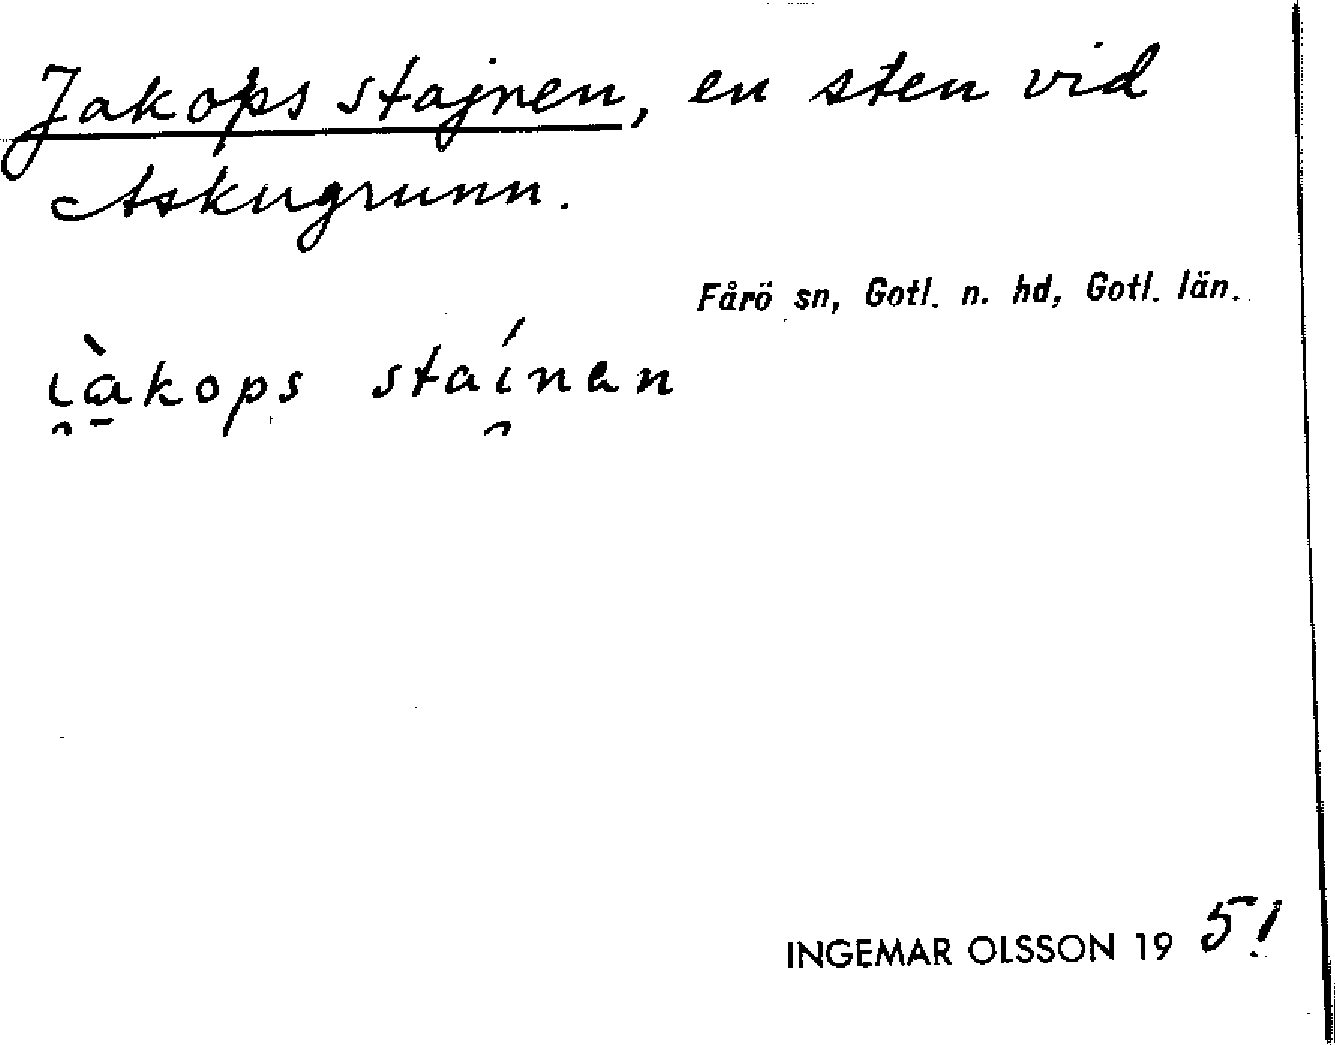 Jakops stajnen, en sten vid
Askugrunn.
Fårö sn, Gotl. n. hd, Gotl. län.
i̯à̠kops staí̯nan
INGEMAR OLSSON 19 51